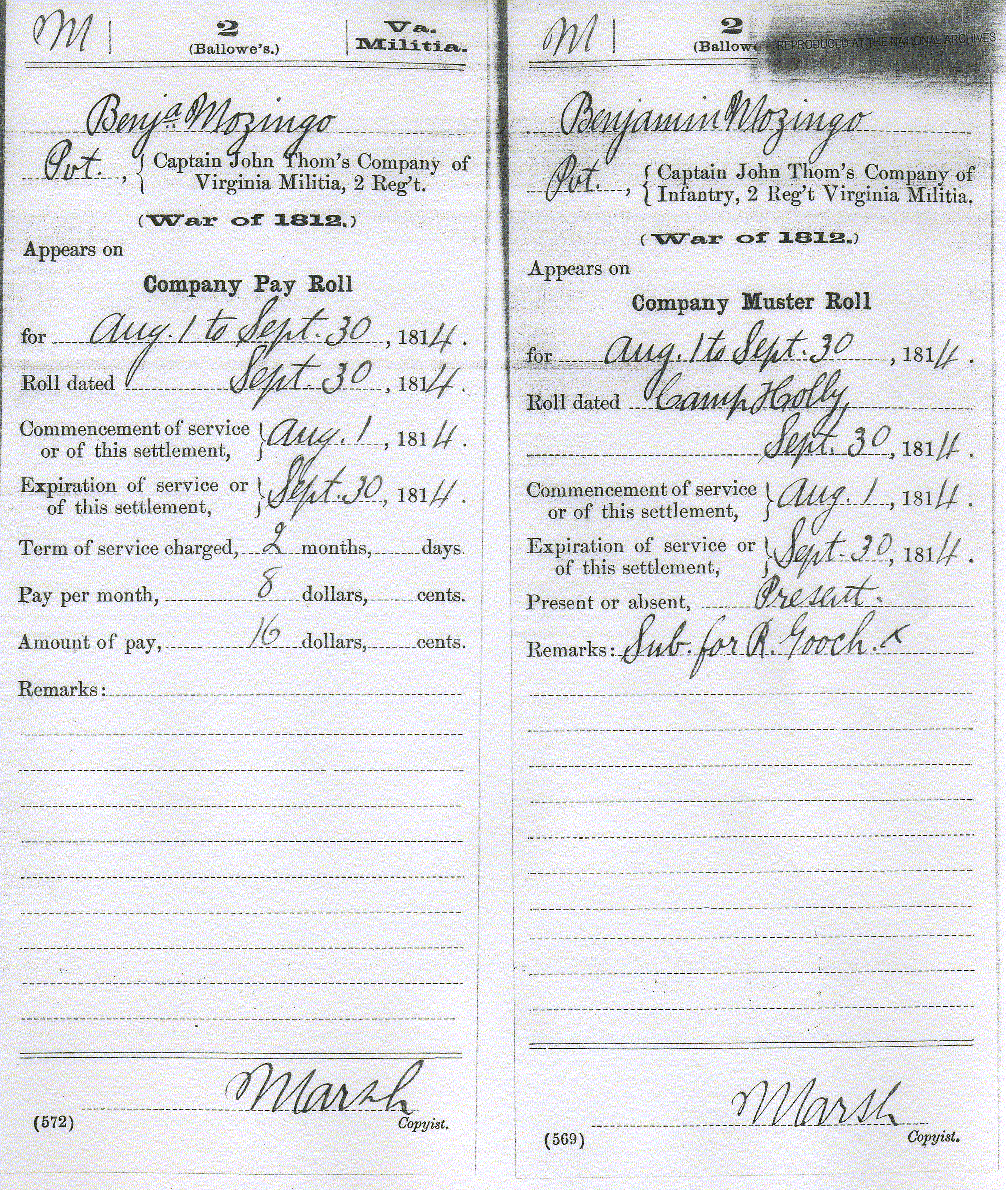 M | 2 | Va.
(Ballowe's.) Militia.
Benja Mozingo
Pvt. , { Captain John Thom's Company of
Virginia Militia, 2 Reg't.
(War of 1812.)
Appears on
Company Pay Roll
for Aug. 1 to Sept. 30 , 1814 .
Roll dated Sept. 30 , 1814 .
Commencement of service
or of this settlement, } Aug. 1 , 1814 .
Expiration of service or
of this settlement, } Sept. 30 , 1814 .
Term of service charged, 2 months, days.
Pay per month, 8 dollars, cents.
Amount of pay, 16 dollars, cents.
Remarks:
Marsh
(572) Copyist.
M | 2
(Ballowe
REPRODUCED AT THE NATIONAL ARCHIVES
Benjamin Mozingo
Pvt. , { Captain John Thom's Company of
Infantry, 2 Reg't Virginia Militia.
(War of 1812.)
Appears on
Company Muster Roll
for Aug. 1 to Sept. 30 , 1814 .
Roll dated Camp Holly,
Sept. 30 , 1814 .
Commencement of service
or of this settlement, } Aug. 1 , 1814 .
Expiration of service or
of this settlement, } Sept. 30 , 1814 .
Present or absent, Present.
Remarks: Sub. for R. Gooch. x
Marsh
(569) Copyist.